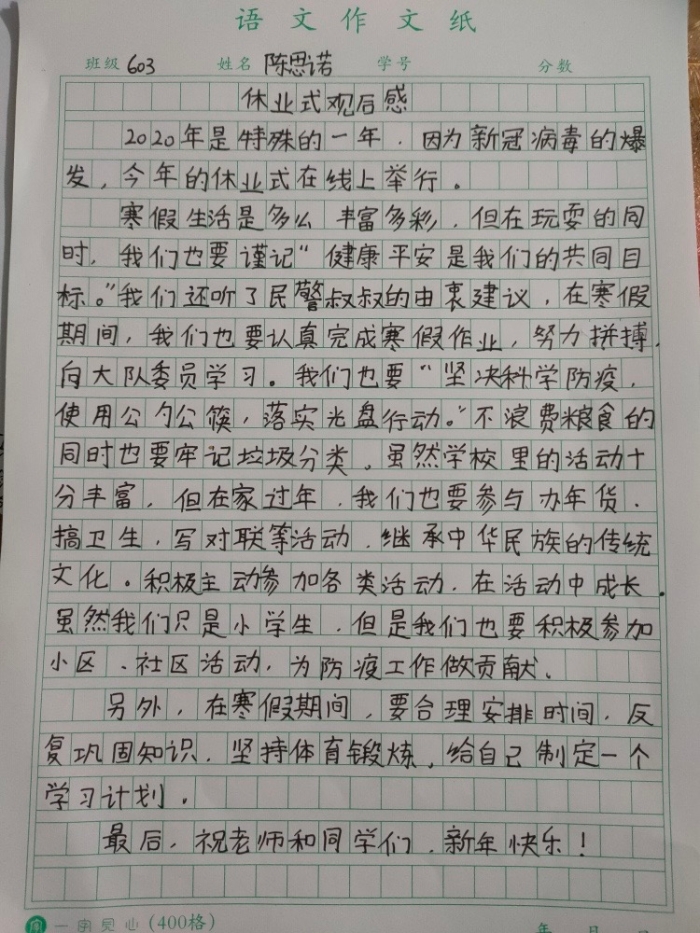 语文作文纸
班级 603 姓名 陈思诺 学号 分数
休业式观后感
2020年是特殊的一年，因为新冠病毒的爆
发，今年的休业式在线上举行。
寒假生活是多么丰富多彩，但在玩耍的同
时，我们也要谨记“健康平安是我们的共同目
标。”我们还听了民警叔叔的由衷建议，在寒假
期间，我们也要认真完成寒假作业，努力拼搏，
向大队委员学习。我们也要“坚决科学防疫，
使用公勺公筷，落实光盘行动。”不浪费粮食的
同时也要牢记垃圾分类。虽然学校里的活动十
分丰富，但在家过年，我们也要参与办年货，
搞卫生，写对联等活动，继承中华民族的传统
文化。积极主动参加各类活动，在活动中成长。
虽然我们只是小学生，但是我们也要积极参加
小区、社区活动，为防疫工作做贡献、
另外，在寒假期间，要合理安排时间，反
复巩固知识，坚持体育锻炼，给自己制定一个
学习计划。
最后，祝老师和同学们，新年快乐！
一字见心（400格） 年 月